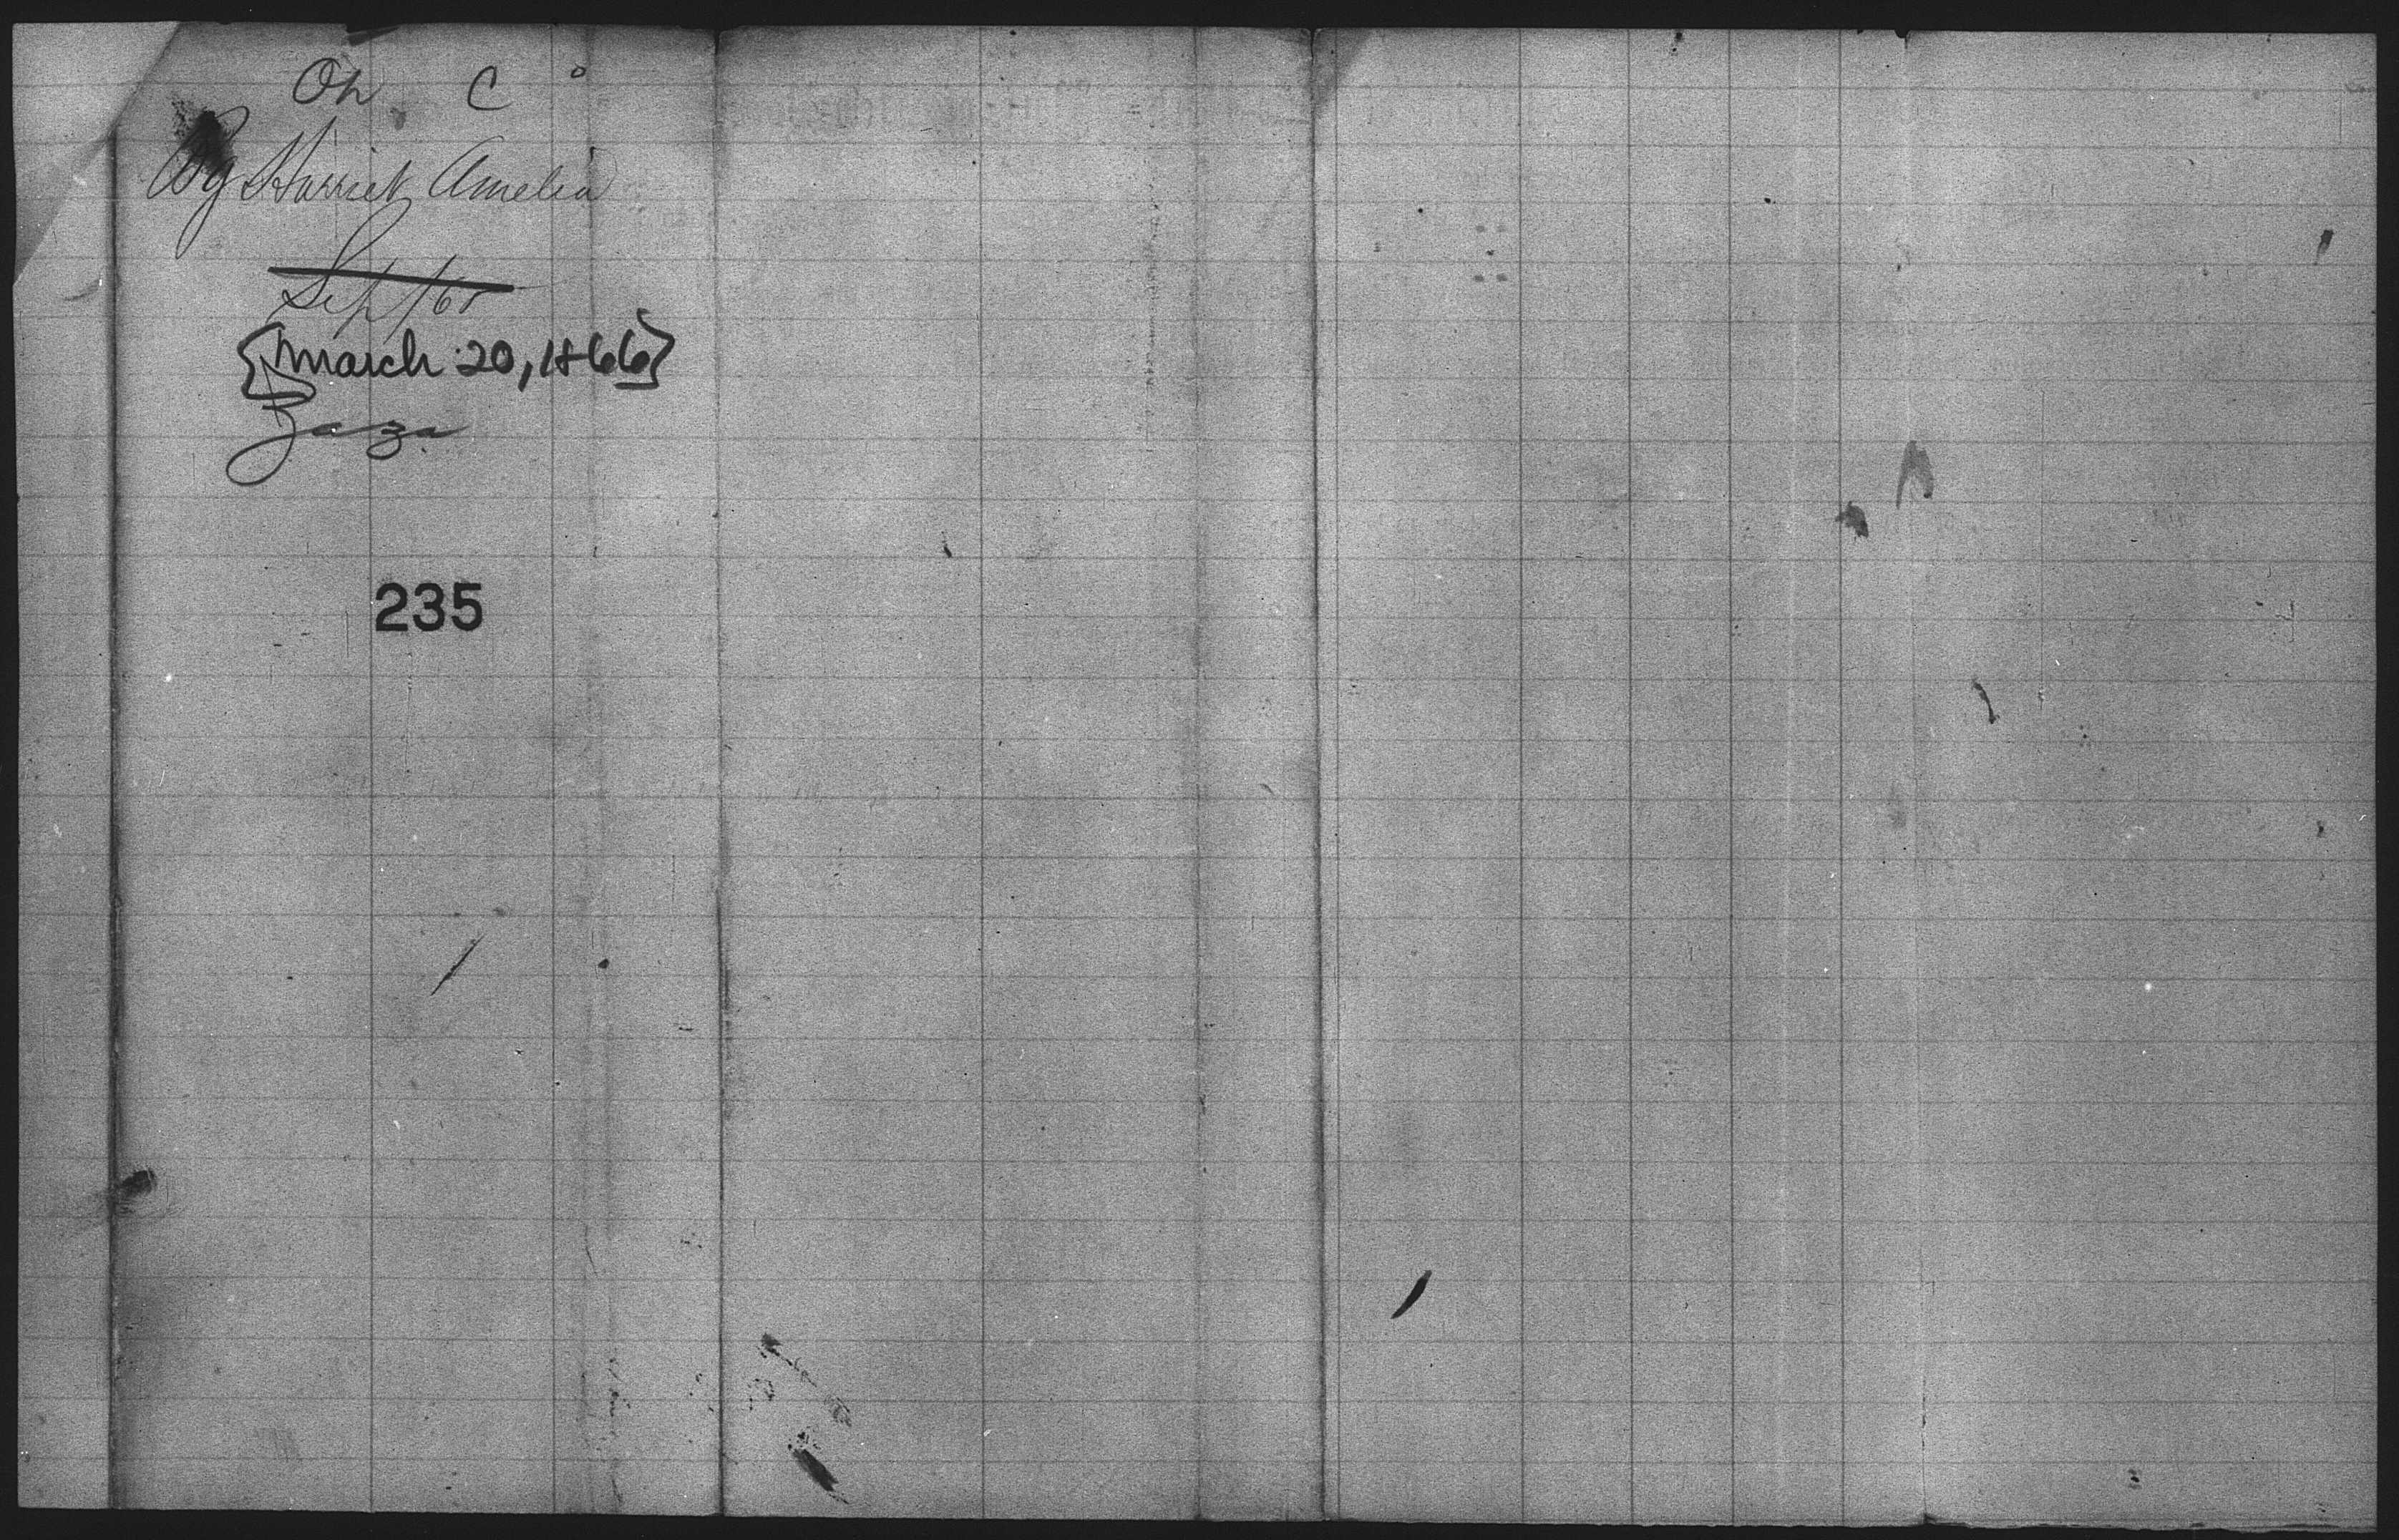 Oh C
Bg Harriet Amelia
Sept 65
{March 20, 1866}
Zaza
235